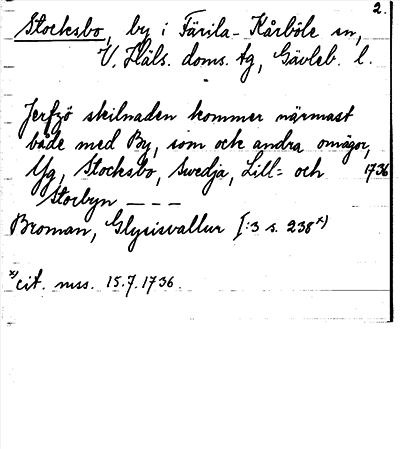 2.
Stocksbo, by i Färila-Kårböle sn,
V. Häls. doms. tg, Gävleb. l.
Jerfsö skilnaden kommer närmast
både med By, som ock andra omägor,
Yg, Stocksbo, Swedja, Lill= och 1736
Storbyn – – –
Broman, Glysisvallur I:3 s. 238 x)
x) cit. mss. 15.7.1736.